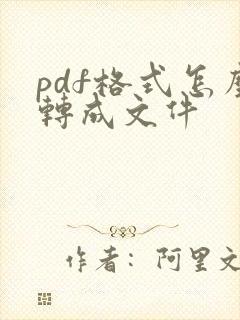 pdf格式怎
轉成文件
作者：阿里文